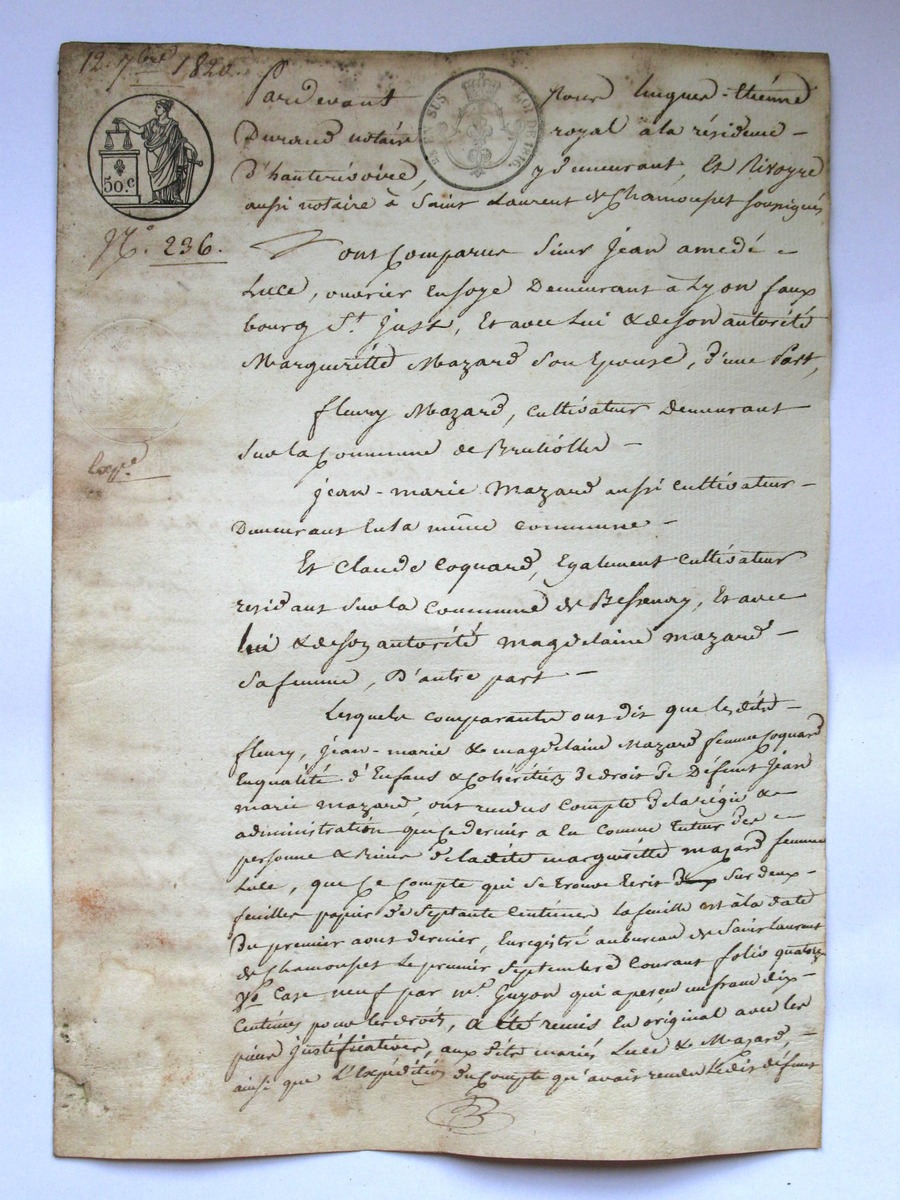 12. 7bre 1820.
Pardevant Pour hugues-Etienne
Durand notaire royal à la résidence -
D'hauterivoire, y demeurant, Et Rivoyre
aussi notaire à Saint Laurent de Chamousset soussignés
EN SUS LOI DE 1816
50.c
N.o 236.
ont Comparus Sieur Jean amedé
Luce, ouvrier En soye Demeurant à Lyon faux
bourg St. Just, Et avec Lui & de son autorité
Margueritte Mazard Son Epouse, d'une Part,
fleury Mazard, Cultivateur Demeurant
Sur la Commune de Brulliolles -
Exp.e
jean-marie Mazard aussi Cultivateur -
Demeurant En la même Commune -
Et Claude Coquard, Egalement Cultivateur
residant Sur la Commune de Bessenay, Et avec
lui & de son autorité magdelaine Mazard -
Sa femme, D'autre part -
Lesquels comparants ont dit que lesdits -
fleury, jean-marie & magdelaine Mazard femme Coquard
En qualité d'Enfans & Cohéritiers de droit de Défunt Jean
marie Mazard, ont rendus Compte de la régie &
administration que Ce dernier a Eu Comme tuteur des
personne & Biens de ladite margueritte Mazard femme
Luce, que Ce Compte qui Se trouve Ecrit Sur deux -
feuilles papier de Septante Centimes la feuille est à la date
Du premier aout dernier, Enregistré au bureau de Saint Laurent
de Chamousset Le premier Septembre Courant folio quatorze
Vo. Case neuf par Mr. Guyon qui a perçu un franc dix -
Centimes pour les droits, a été remis En original avec les
pieces justificatives, aux dits mariés Luce & Mazard, -
ainsi que L'Expédition du Compte qu'avait rendu Ledit défunt